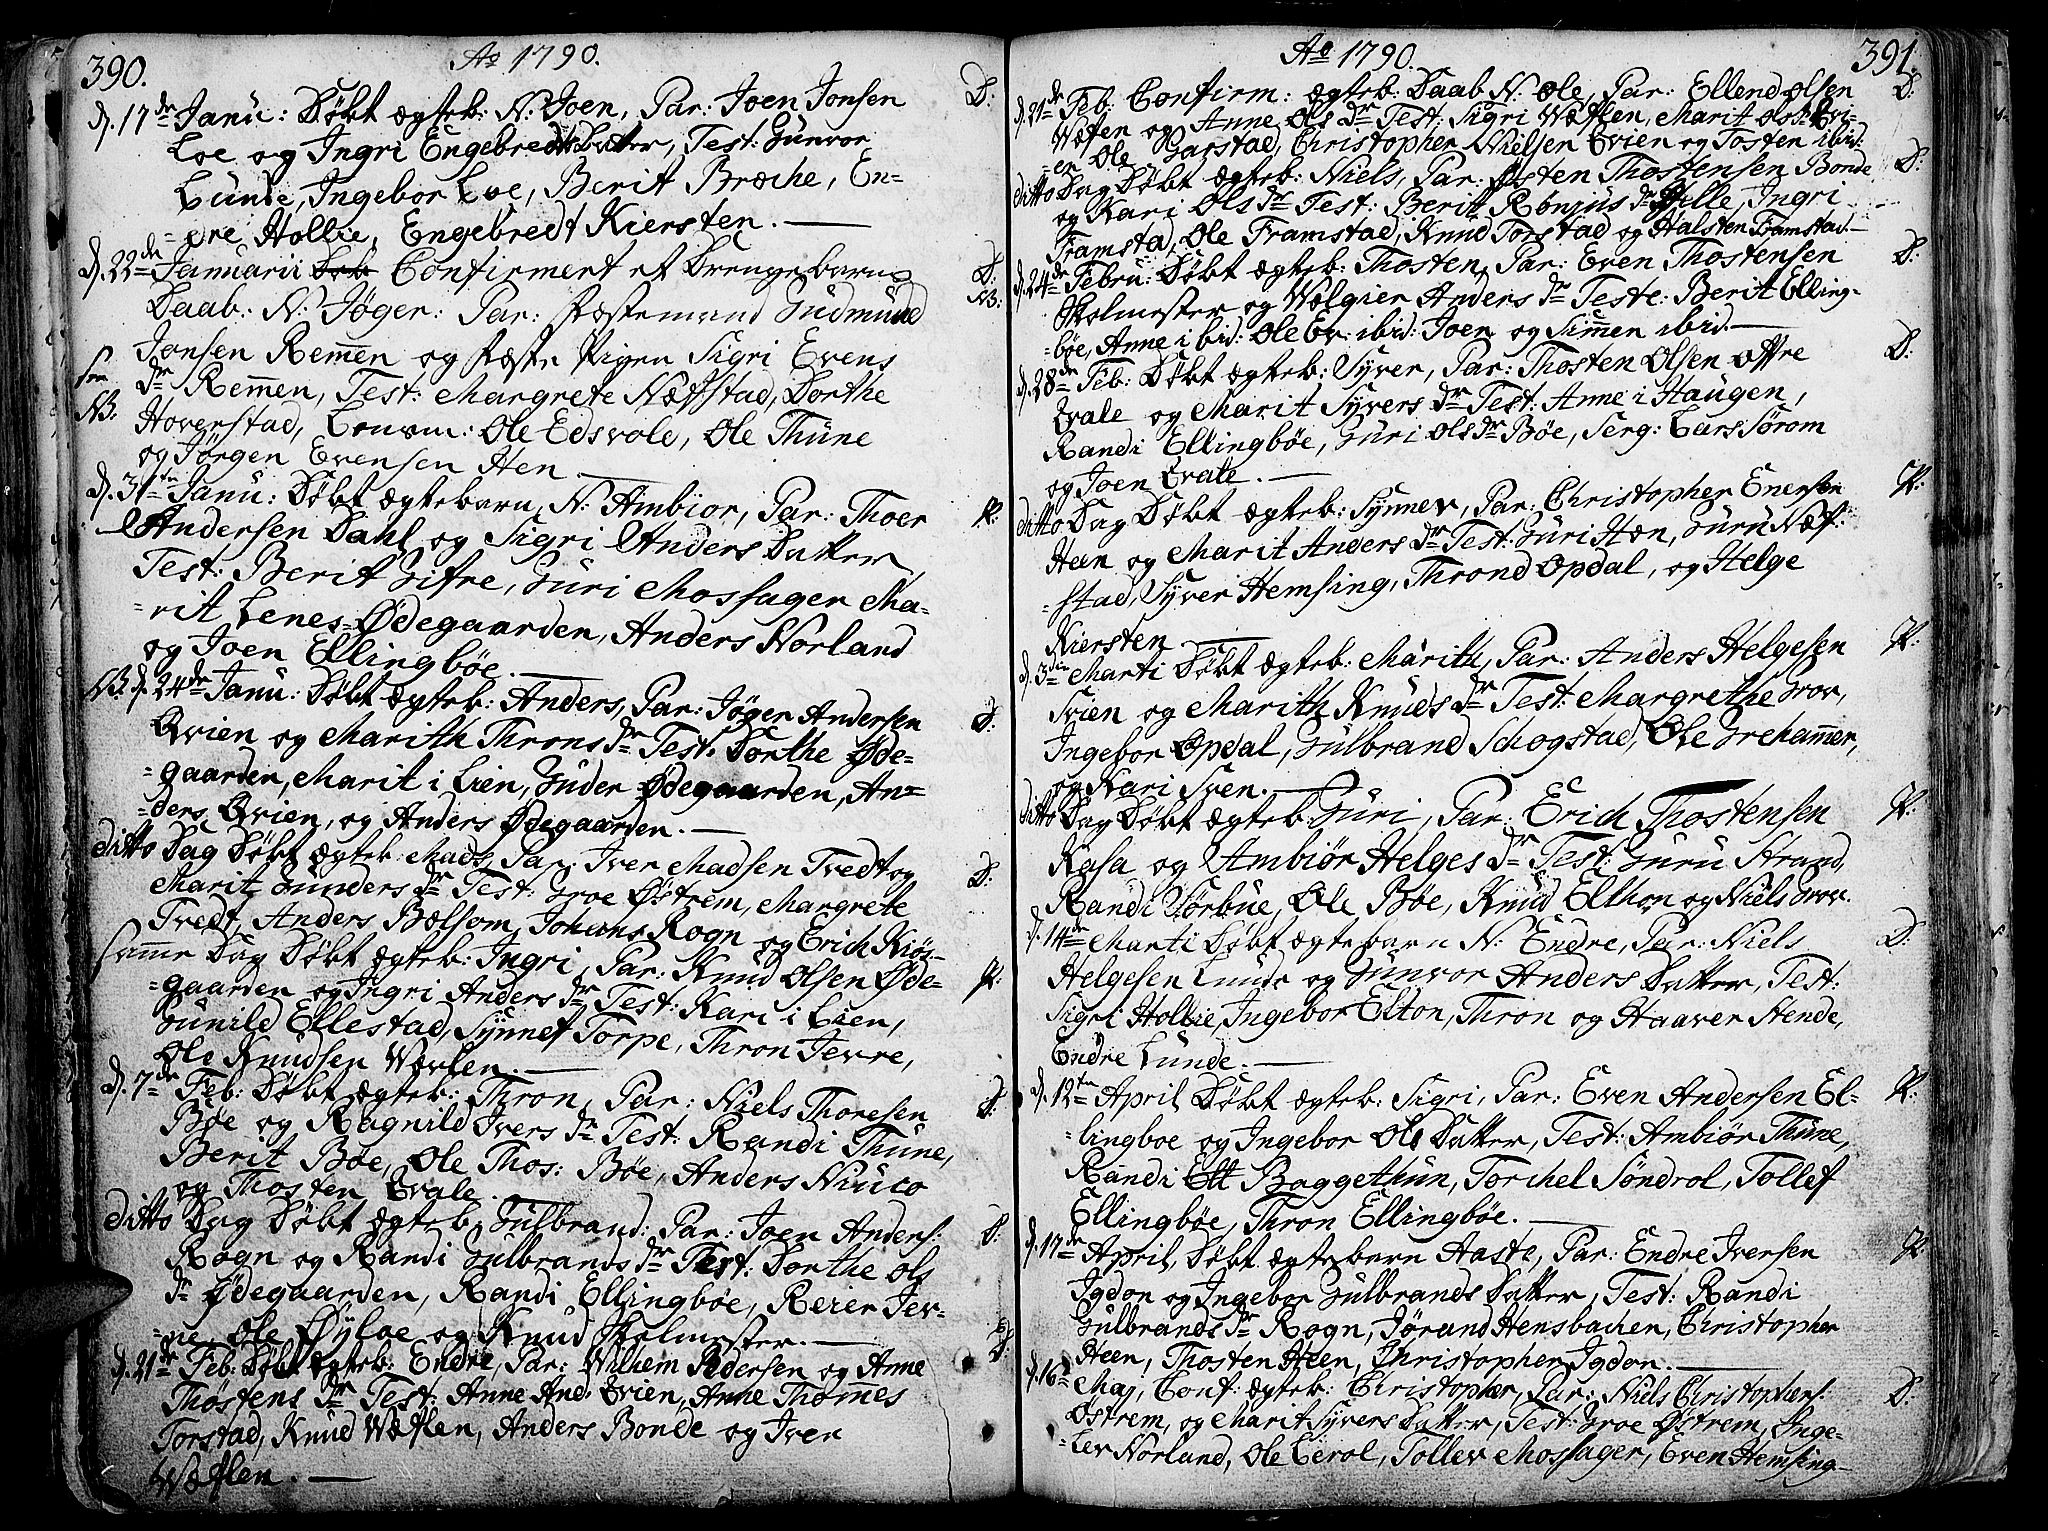 390.
Ao 1790.
d. 17de Janu: Døbt ægteb: N: Joen, Par: Joen Jonsen D:
Loe og Ingri Engebredsdatter, Test: Gunvor
Lunde, Ingebor Loe, Berit Bræche, En-
=dre Hollie, Engebredt Kiersten. —
d. 22de Januarii Confirmert et Drengebarns D:
Daab: N: Jøger: Par: Fæstemand Gudmund NB:
Jonsen Remen og Fæste Pigen Sigri Evens
dr Remen, Test: Margrete Næfstad, Dorthe
NB. Hovrstad, Ole Edsvole, Ole Thune
og Jørgen Evensen Hen —
d. 31te Janu: Døbt ægtebarn N: Ambior, Par: Thoer P:
Andersen Dahl og Sigri Anders Datter,
Test: Berit Gifre, Guri Mossager Ma-
=rit Lenes=Ødegaarden, Anders Norland
og Joen Ellingbøe. —
NB. d. 24de Janu: Døbt ægteb: Anders, Par: Jøger Andersen D:
Qvien og Marith Throns dr Test: Dorthe Øde-
=gaarden, Marit i Lien, Guder Ødegaarden, An=
=ders Qvien, og Anders Ødegaarden. —
ditto Dag Døbt ægteb: Mads, Par: Iver Madsen Tvedt og D:
Marit Gunders dr Test: Groe Østrem, Margrete
Tvedt, Anders Bælsom, Johans Rogn og Erich Kiøs-
Samme Dag Døbt ægteb: Ingri, Par: Knud Olsen Øde- P:
=gaarden og Ingri Anders dr Test: Kari i Lien,
Gunild Ellestad, Synnef Torpe, Thron Jevre,
Ole Knudsen Wæflen. —
d. 7de Feb: Døbt ægteb: Thron, Par: Niels Thoresen D:
Bøe og Ragnild Ivers dr Test: Randi Thune,
Berit Bøe, Ole Thos: Bøe, Anders Niuco
og Thosten Qvale. —
ditto Dag Døbt ægteb: Gulbrand: Par: Joen Anders: D:
Rogn og Randi Gulbrands dr Test: Dorthe Ols
dr Ødegaarden, Randi Ellingbøe, Reier Jev-
=ne, Ole Øyloe og Knud Skolmester. —
d. 21de Feb: Døbt ægteb: Endre, Par: Wilhem Pedersen og Anne D:
Thostens dr Test: Anne And: Qvien, Anne Thomes
Torstad, Knud Wæflen, Anders Bonde og Iver
Wæflen. —
391.
Ao 1790.
d. 21de Feb: Confirm: ægteb: Daab N: Ole, Par: Ellend Olsen D:
Wæten og Anne Ols dr Test: Sigri Wæflen, Marit Ols dr Qvi-
=en Ole Garstad, Christopher Nielsen Qvien og Tosten ibid:
ditto Dag Døbt ægteb: Niels, Par: Østen Thostensen Bonde D:
og Kari Ols dr Test: Berit Rønjus dr Hille, Ingri
Framstad, Ole Framstad, Knud Torstad og Halsten Framstad. —
d. 24de Febru: Døbt ægteb: Thosten, Par: Even Thostensen D:
Skolmester og Wælgier Anders dr Teste: Berit Elling-
=bøe, Anne i ibid: Ole Ev: ibid: Joen og Simen ibid. —
d. 28de Feb: Døbt ægteb: Syver, Par: Thosten Olsen Øfre D:
Qvale og Marit Syvers dr Test: Anne i Haugen,
Randi Ellingbøe, Guri Ols dr Bøe, Serg: Lars Sørom
og Joen Qvale. —
ditto Dag Døbt ægteb: Synnev, Par: Christopher Enersen P:
Heen og Marit Anders dr Test: Guri Hæn, Guru Næf-
=stad, Syver Hemsing, Thrond Opdal, og Helge
Kiersten —
d. 3die Marti Døbt ægteb: Marith, Par: Anders Helgesen P:
Svien og Marith Knuds dr Test: Margrethe Grov,
Ingebor Opdal, Gulbrand Schogstad, Ole Grehammer,
og Kari Sven. —
ditto Dag Døbt ægteb Guri, Par: Erich Thostensen P:
Kasa og Ambiør Helges dr Test: Guru Strand,
Randi Sørbue, Ole Bøe, Knud Elthon og Niels Grov.
d. 14de Marti Døbt ægtebarn N: Endre, Par: Niels D:
Helgesen Lunde og Gunvor Anders Datter, Test:
Sigri Hollie, Ingebor Elton, Thron og Haaver Hende,
Endre Lunde. —
d. 12te April Døbt ægteb: Sigri, Par: Even Andersen El- P:
=lingboe og Ingebor Ols Datter, Test: Ambiør Thune,
Randi Baggethun, Torchel Søndrol, Tollef
Ellingbøe, Thron Ellingbøe. —
d. 17de April, Døbt ægtebarn Aaste, Par: Endre Iversen P:
Igdon og Ingebor Gulbrands Datter, Test: Randi
Gulbrands dr Rogn, Jørand Hensbachen, Christopher
Heen, Thosten Heen, Christopher Igdon. —
d. 16de Maj, Conf: ægteb: Christopher, Par: Niels Christophers: D:
Østrem, og Marit Syvers Datter, Test: Groe Østrem, Inge-
=lev Norland, Ole Lerol, Tollev Mossager, Even Hemsing-